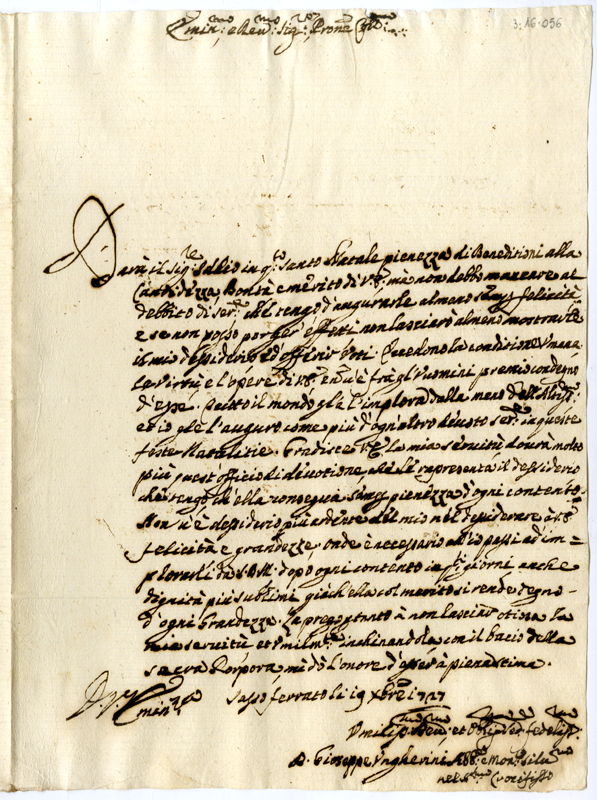 3:16-056
Emin:mo e Reu:mo Sig:r Prone
Darà il Sig:re Iddio in q:to Santo Natale pienezza di Beneditioni alla
Bontà e merito di V:E: mà non debbo mancare al
debbito di ser:re che tengo d'augurarle almeno felicità
e se non posso porger effetti non lasciarò almeno
il mio dessiderio et offerir Voti. Eccedono la conditione Umana
le Virtù e l'opere di V:E: è frà gl'Huomini premio condegno
d'esse. tutto il mondo gle l'implora dalla
et io gle l'auguro come più d'ogn'altro deuoto ser:re in queste
feste Natalitie. Gradisca V:E: la mia seruitù dourà molto
più quest'officio di diuotione, che le rapresenta il dessiderio
che tengo ch'ella conseguа pienezza d'ogni contento.
Non u'è dessiderio più ardente del mio nel desiderare à V:E:
felicità e grandezze, onde è necessario ch'io passi ad im=
plorarli da S.D.M. dopo ogni contento in giorni anche
dignità più sublimi giàch'ella col merito si rende degno
d'ogni Grandezza. La prego p:tanto à non lasciar otiosa la
mia seruitù et Umilm:te inchinandola con il bacio della
sacra Porpora, mi dò l'onore d'esser à piena stima.
Di V:ra Emin:za Sassoferrato li 19 Xbre 1727
Umiliss:mo Deu:mo et Oblig:mo Ser: fedeliss:mo
D. Giuseppe Ungherini Abb:e e Mon:co Silu:no
nel S:mo Crocifisso